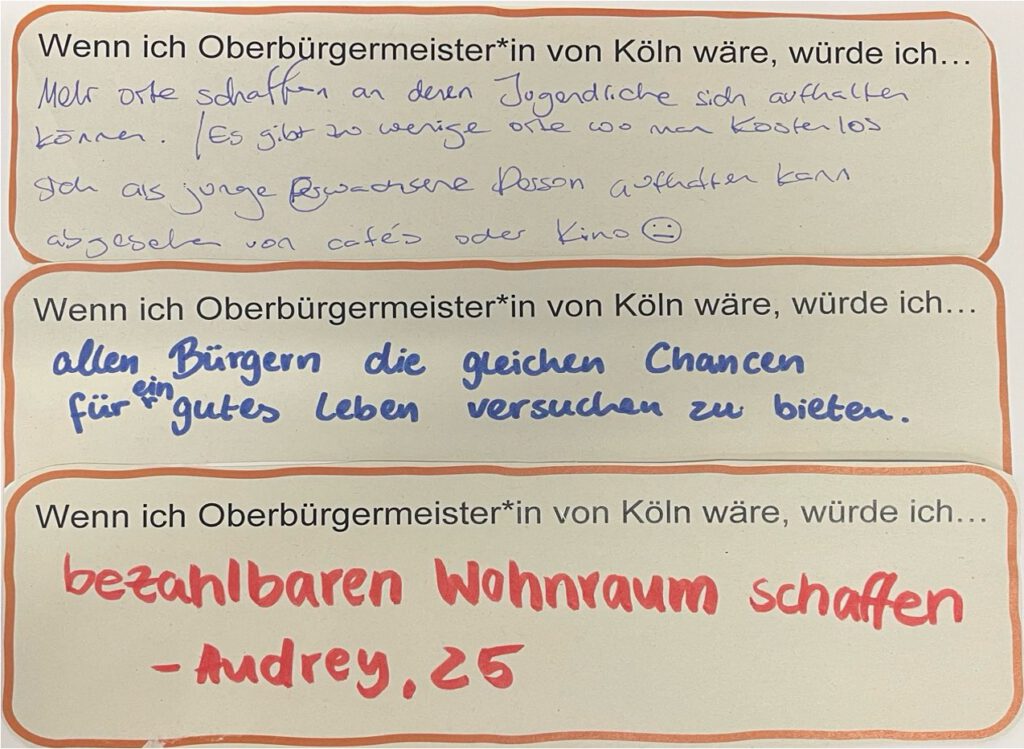 Wenn ich Oberbürgermeister*in von Köln wäre, würde ich...
Mehr orte schaffen an denen Jugendliche sich aufhalten
können. /Es gibt zu wenige orte wo man kostenlos
sich als junge Erwachsene Person aufhalten kann
abgesehen von cafés oder Kino
Wenn ich Oberbürgermeister*in von Köln wäre, würde ich...
allen Bürgern die gleichen Chancen
für ein gutes Leben versuchen zu bieten.
Wenn ich Oberbürgermeister*in von Köln wäre, würde ich...
bezahlbaren Wohnraum schaffen
- Audrey, 25